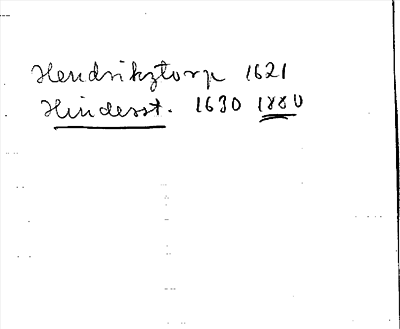 Hendrikztorp 1621
Hindersst. 1630 1880